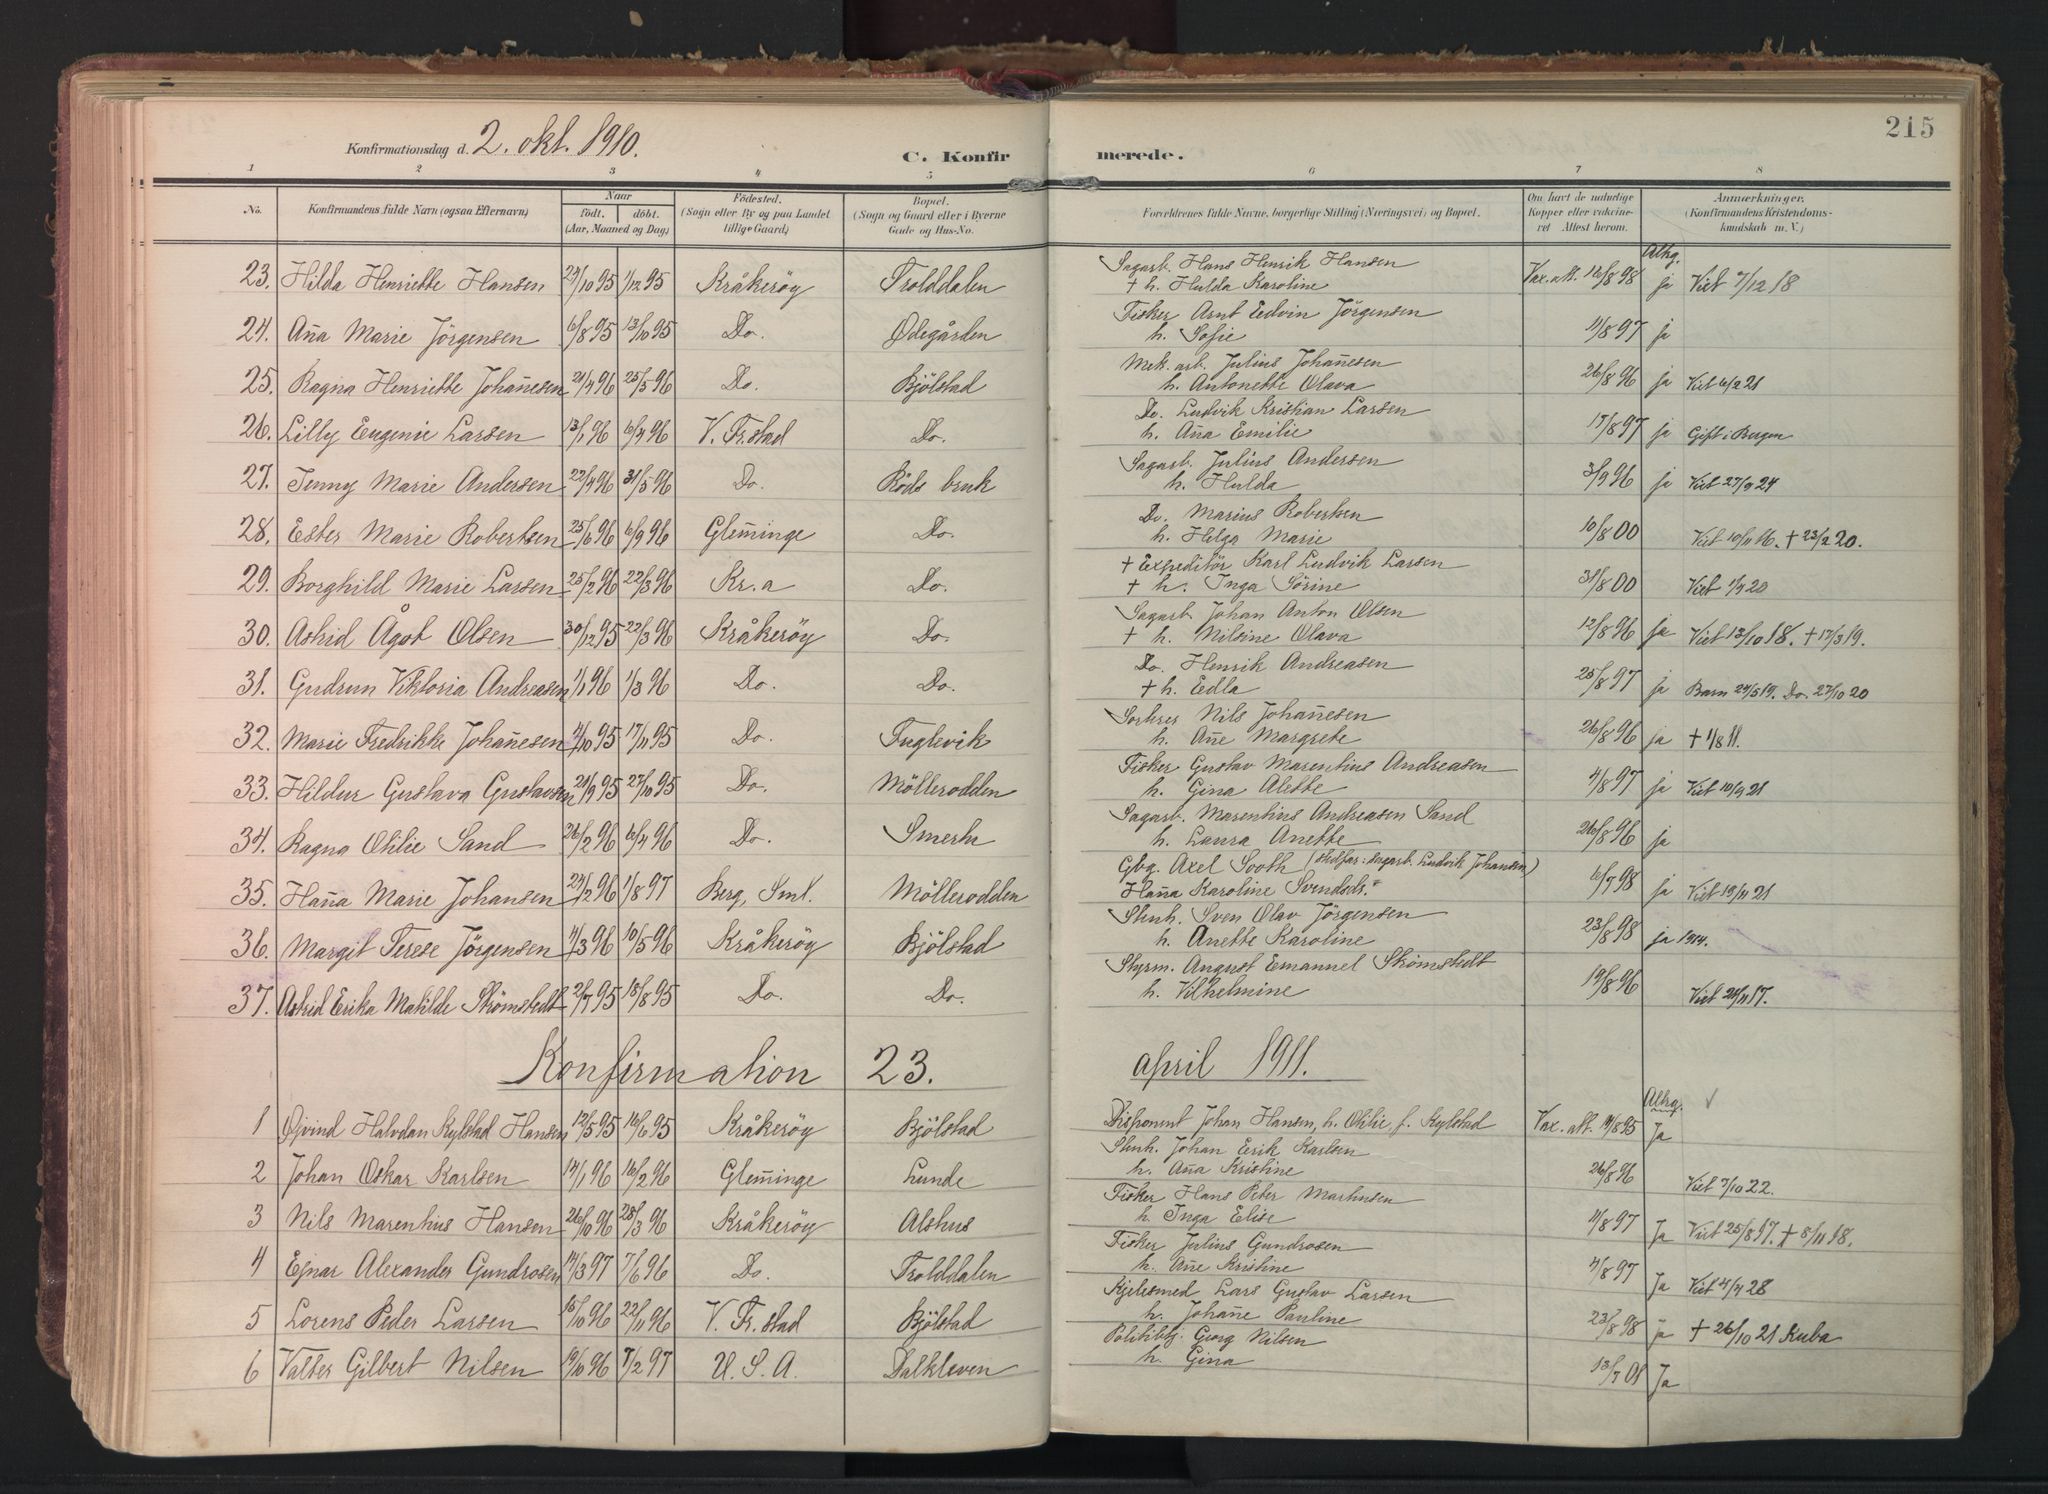 215
Konfirmationsdag d. 2. okt. 1910.
C. Konfirmerede.
1 2 3 4 5 6 7 8
No. Konfirmandens fulde Navn (ogsaa Efternavn) Naar født. døbt. (Aar, Maaned og Dag) Fødested. (Sogn eller By og paa Landet tillige Gaard) Bopæl. (Sogn og Gaard eller i Byerne Gade og Hus-No. Forældrenes fulde Navne, borgerlige Stilling (Næringsvei) og Bopæl. Om havt de naturlige Kopper eller vaksineret Attest herom. Anmærkninger. (Konfirmandens Kristendomskundskab m. V.)
Altg.
23. Hilda Henriette Hansen 29/10 95 1/12 95 Kråkerøy Trolddalen Sagarb. Hans Henrik Hansen + h. Hulda Karoline Vax. att. 16/8 98 ja Viet 7/12 18
24. Aña Marie Jörgensen 6/8 95 13/10 95 Do. Ødegården Fisker Arnt Edvin Jörgensen h. Sofie 11/8 97 ja
25. Ragna Henriette Johañesen 21/4 96 25/5 96 Do. Bjölstad Mek. arb. Julius Johañesen h. Antonette Olava 26/8 96 ja Viet 6/2 21
26. Lilly Eugenie Larsen 13/1 96 6/4 96 V. Fr.stad Do. Do. Ludvik Kristian Larsen h. Aña Emilie 17/8 97 ja Gift i Bergen
27. Jenny Marie Andersen 22/4 96 31/5 96 Do. Röds bruk Sagarb. Julius Andersen h. Hulda 3/9 96 ja Viet 27/9 24
28. Ester Marie Robertsen 25/6 96 6/9 96 Glem̄inge Do. Do. Marius Robertsen h. Helga Marie 10/8 00 Viet 10/11 16. + 23/2 20.
29. Borghild Marie Larsen 25/2 96 22/3 96 Kr.a Do. + Expeditör Karl Ludvik Larsen + h. Inga Sörine 31/8 00 Viet 1/4 20
30. Astrid Ågot Olsen 30/12 95 22/3 96 Kråkerøy Do. Sagarb. Johan Anton Olsen + h. Nilsine Olava 12/8 96 ja Viet 13/10 18. + 17/3 19.
31. Gudrun Viktoria Andreasen 1/1 96 1/3 96 Do. Do. Do. Henrik Andreasen + h. Edla 25/8 97 ja Barn 24/5 19. Do. 27/10 20
32. Marie Fredrikke Johañesen 4/10 95 17/11 95 Do. Fuglevik Nils Johañesen h. Añe Margrete 26/8 96 ja + 1/8 11.
33. Hildur Gustava Gustavsen 21/9 95 27/10 95 Do. Möllerodden Fisker Gustav Marentius Andreasen h. Gina Alette 4/8 97 ja Viet 10/9 21
34. Ragna Otilie Sand 26/2 96 6/4 96 Do. Smerta Sagarb. Marentius Andreasen Sand h. Laura Anette 26/8 96 ja
35. Haña Marie Johansen 24/2 96 1/8 97 Berg, Sml. Möllerodden Gbg. Axel Sooth (stedfar: sagarb. Ludvik Johansen) Haña Karoline Svendsd. 6/7 98 ja Viet 13/11 21
36. Margit Terese Jörgensen 4/3 96 10/5 96 Kråkerøy Bjölstad Stenh. Sven Olav Jörgensen h. Anette Karoline 23/8 98 ja 1914.
37. Astrid Erika Matilde Strömstedt 2/7 95 18/8 95 Do. Do. Styrm. August Emanuel Strömstedt h. Vilhelmine 19/8 96 Viet 24/11 17.
Konfirmation 23. april 1911.
Altg.
1 Øivind Halvdan Kylstad Hansen 12/5 95 16/6 95 Kråkerøy Bjölstad Disponent Johan Hansen, h. Otilie f. Kylstad Vax. att. 14/8 95 Ja
2 Johan Oskar Karlsen 14/1 96 16/2 96 Glem̄inge Lunde Stenh. Johan Erik Karlsen h. Aña Kristine 26/8 96 Viet 7/10 22.
3 Nils Marentius Hansen 26/10 96 28/3 96 Kråkerøy Alshus Fisker Hans Peter Martinsen h. Inga Elise 11/8 97 Ja Viet 25/8 17. + 8/11 18.
4 Ejnar Alexander Gundrosen 14/3 97 7/6 96 Do. Trolddalen Fisker Julius Gundrosen h. Añe Kristine 4/8 97 Ja Viet 4/4 28
5 Lorens Peder Larsen 15/10 96 22/11 96 V. Fr.stad Bjölstad Kjelesmed Lars Gustav Larsen h. Johañe Pauline 23/8 98 ja + 26/10 21 Kuba
6 Valter Gilbert Nilsen 19/10 96 7/2 97 U. S. A. Dalkleven Politibtj. Georg Nilsen h. Gina 13/7 01 Ja